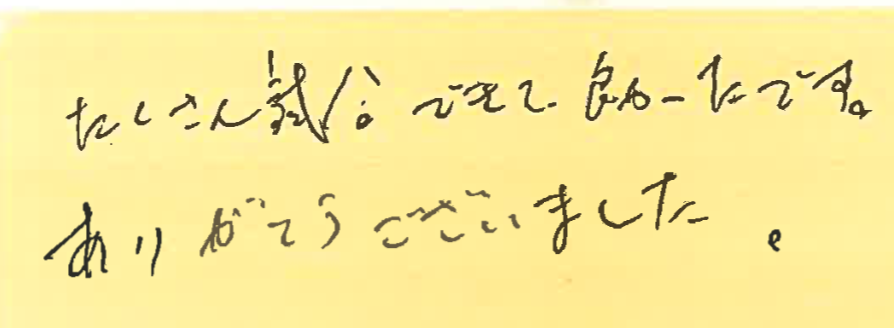 たくさん試合できて良かったです。
ありがとうございました。